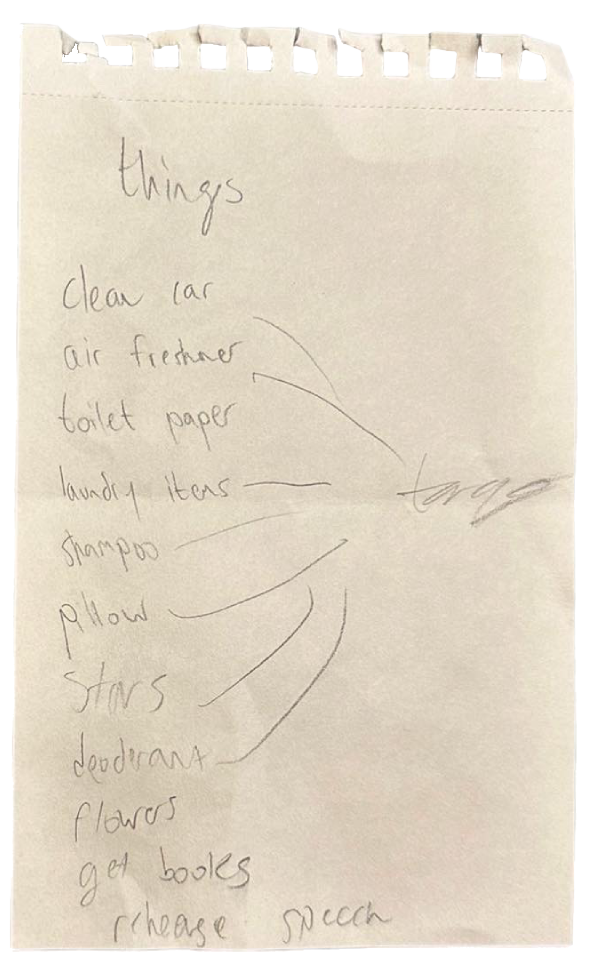 things
clean car
air freshner
toilet paper
laundry items
shampoo
pillow
stars
deoderant
flowers
get books
rehease speech